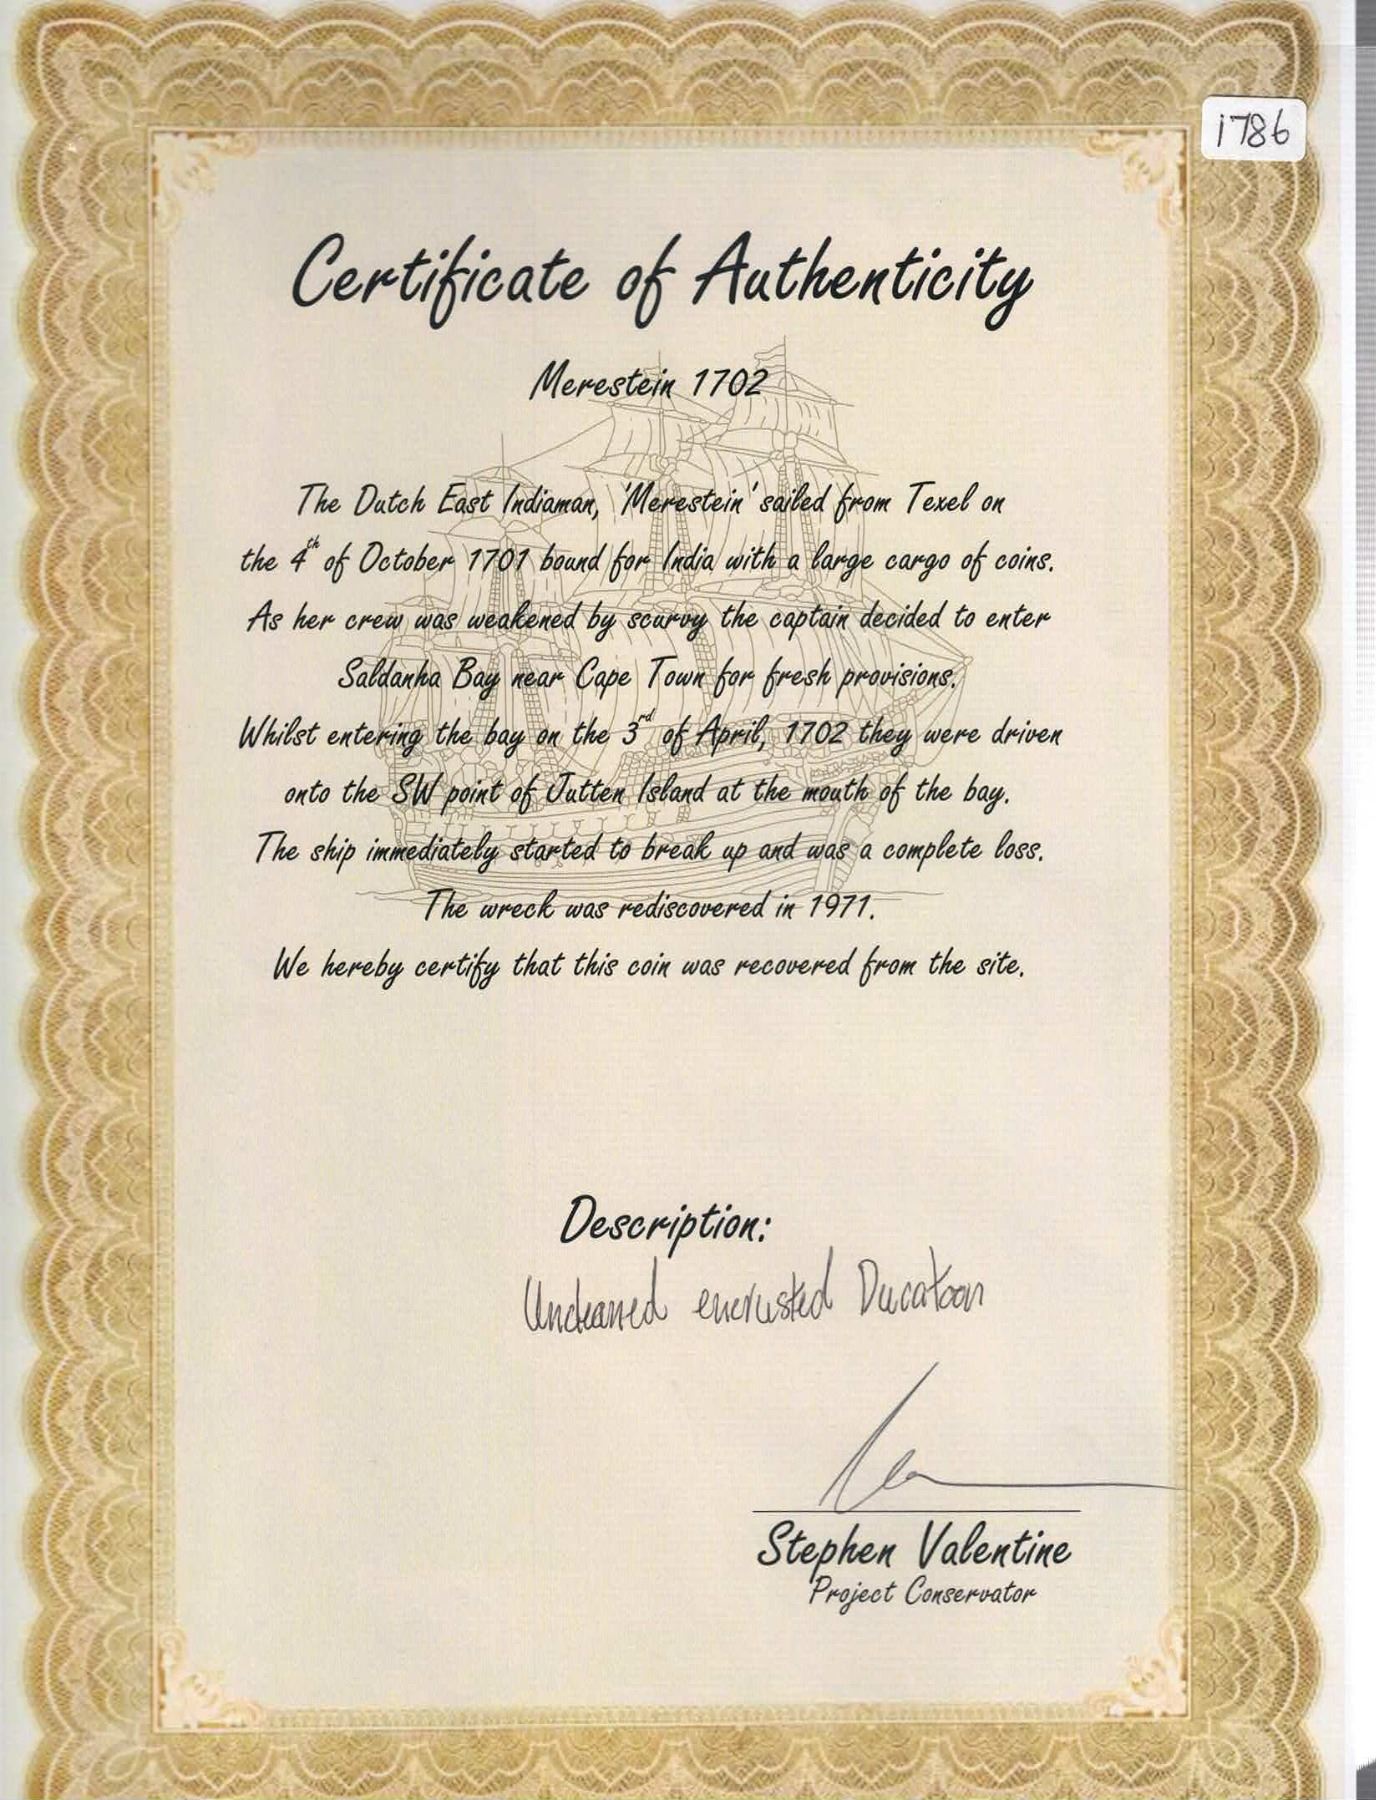 1786
Certificate of Authenticity
Merestein 1702
The Dutch East Indiaman, 'Merestein' sailed from Texel on
the 4th of October 1701 bound for India with a large cargo of coins.
As her crew was weakened by scurvy the captain decided to enter
Saldanha Bay near Cape Town for fresh provisions.
Whilst entering the bay on the 3rd of April, 1702 they were driven
onto the SW point of Jutten Island at the mouth of the bay.
The ship immediately started to break up and was a complete loss.
The wreck was rediscovered in 1971.
We hereby certify that this coin was recovered from the site.
Description:
Uncleaned encrusted Ducatoon
Stephen Valentine
Project Conservator